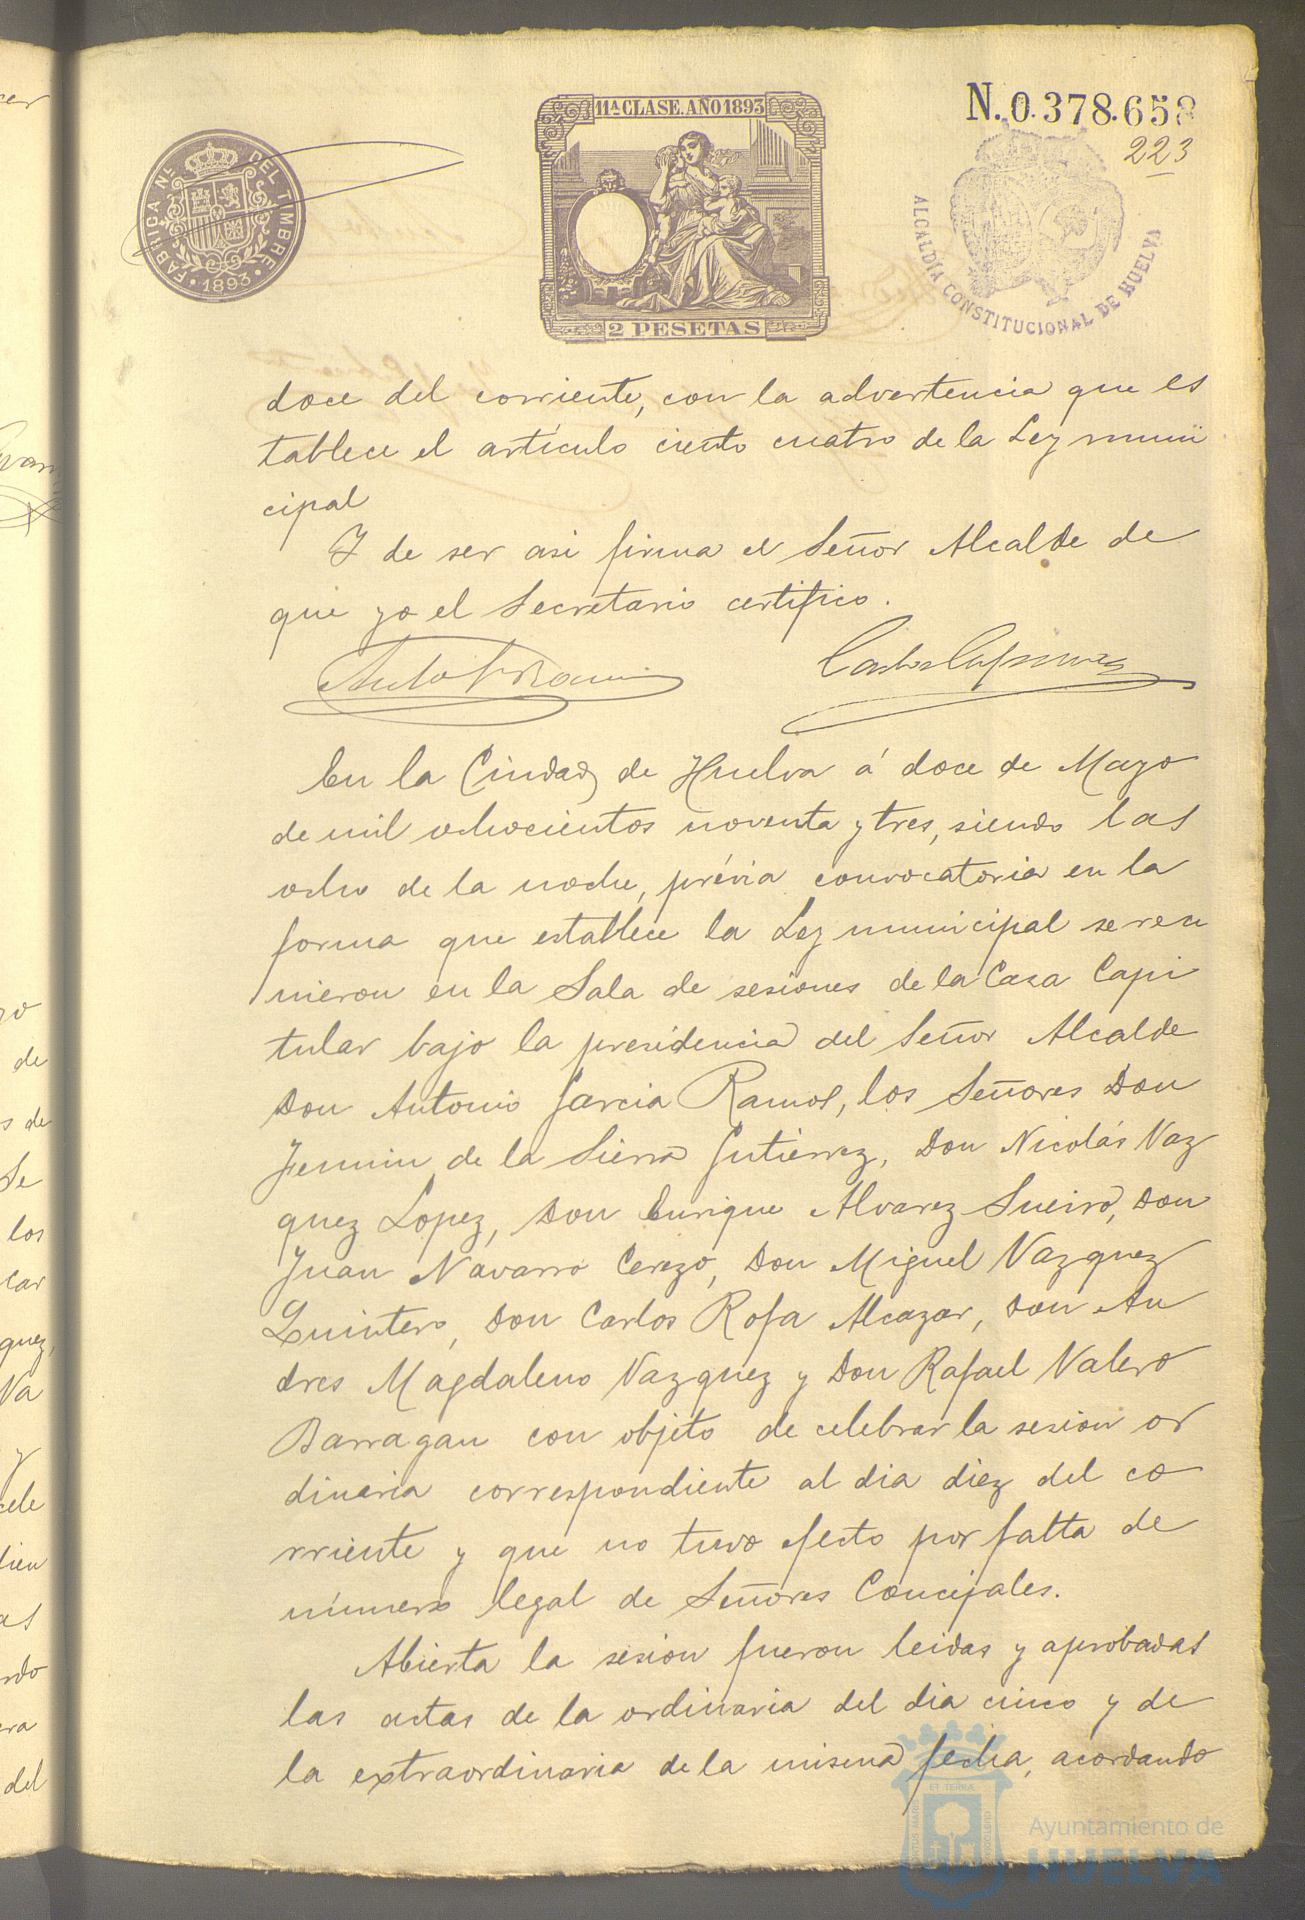 11ª CLASE. AÑO 1893
2 PESETAS
FABRICA Nal. DEL TIMBRE
1893
N. 0.378.658
223
ALCALDÍA CONSTITUCIONAL DE HUELVA
doce del corriente, con la advertencia que es
tablece el artículo ciento cuatro de la Ley muni
cipal
Y de ser asi firma el Señor Alcalde de
que yo el Secretario certifico.
En la Ciudad de Huelva á doce de Mayo
de mil ochocientos noventa y tres, siendo las
ocho de la noche, prévia convocatoria en la
forma que establece la Ley municipal se reu
nieron en la Sala de sesiones de la Casa Capi
tular bajo la presidencia del Señor Alcalde
Don Antonio Garcia Ramos, los Señores Don
Fermin de la Sierra Gutierrez, Don Nicolás Vaz
quez Lopez, Don Enrique Alvarez Sueiro, Don
Juan Navarro Cerezo, Don Miguel Vazquez
Quintero, Don Carlos Rofa Alcazar, Don An
dres Magdaleno Vazquez y Don Rafael Valero
Barragan con objeto de celebrar la sesion or
dinaria correspondiente al dia diez del co
rriente y que no tuvo efecto por falta de
número legal de Señores Concejales.
Abierta la sesion fueron leidas y aprobadas
las actas de la ordinaria del dia cinco y de
la extraordinaria de la misma fecha, acordando
Ayuntamiento de
HUELVA